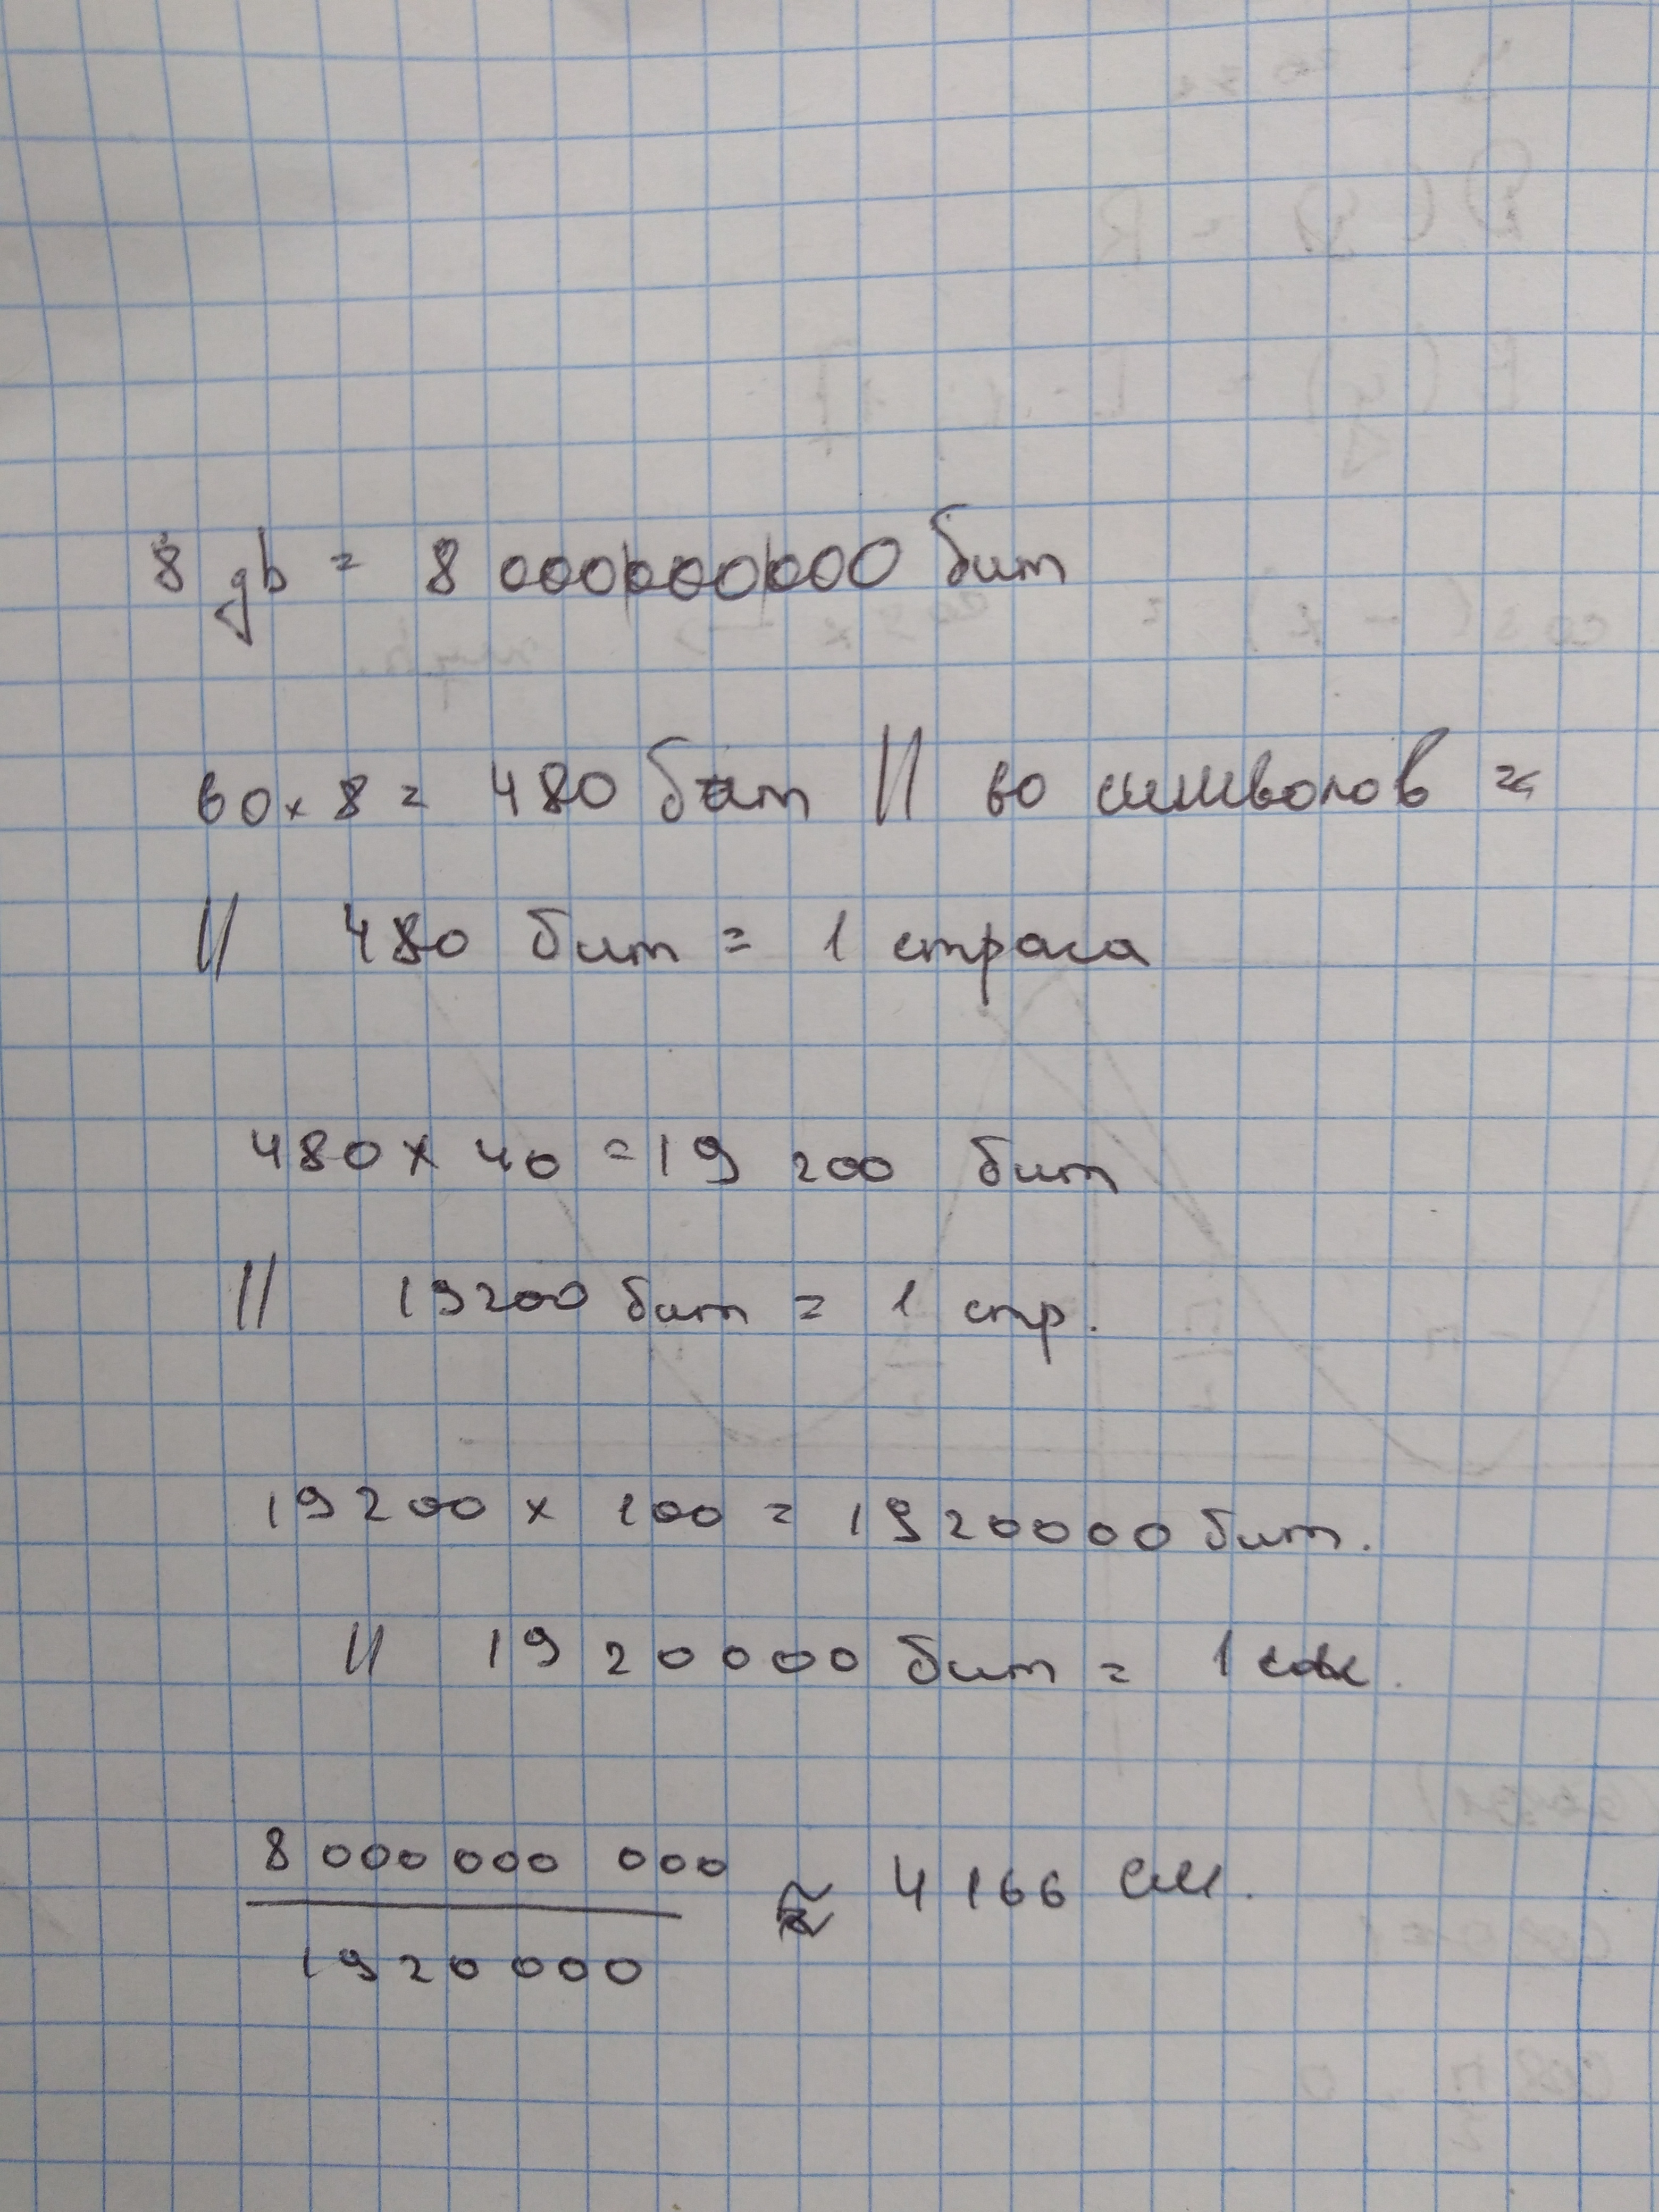 8 gb = 8 000000000 бит
60 x 8 = 480 бит // 60 символов =
// 480 бит = 1 страса
480 x 40 = 19 200 бит
// 19200 бит = 1 стр.
19200 x 100 = 1920000 бит.
// 1920000 бит = 1
8 000 000 000
≈ 4166 см.
1920 000